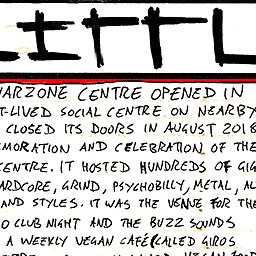 LITTL
WARZONE CENTRE OPENED IN
T-LIVED SOCIAL CENTRE ON NEARBY
CLOSED ITS DOORS IN AUGUST 2018
MORATION AND CELEBRATION OF THE
CENTRE. IT HOSTED HUNDREDS OF GIG
ARDCORE, GRIND, PSYCHOBILLY, METAL, AL
AND STYLES. IT WAS THE VENUE FOR THE
O CLUB NIGHT AND THE BUZZ SOUNDS
A WEEKLY VEGAN CAFÉ (CALLED GIROS